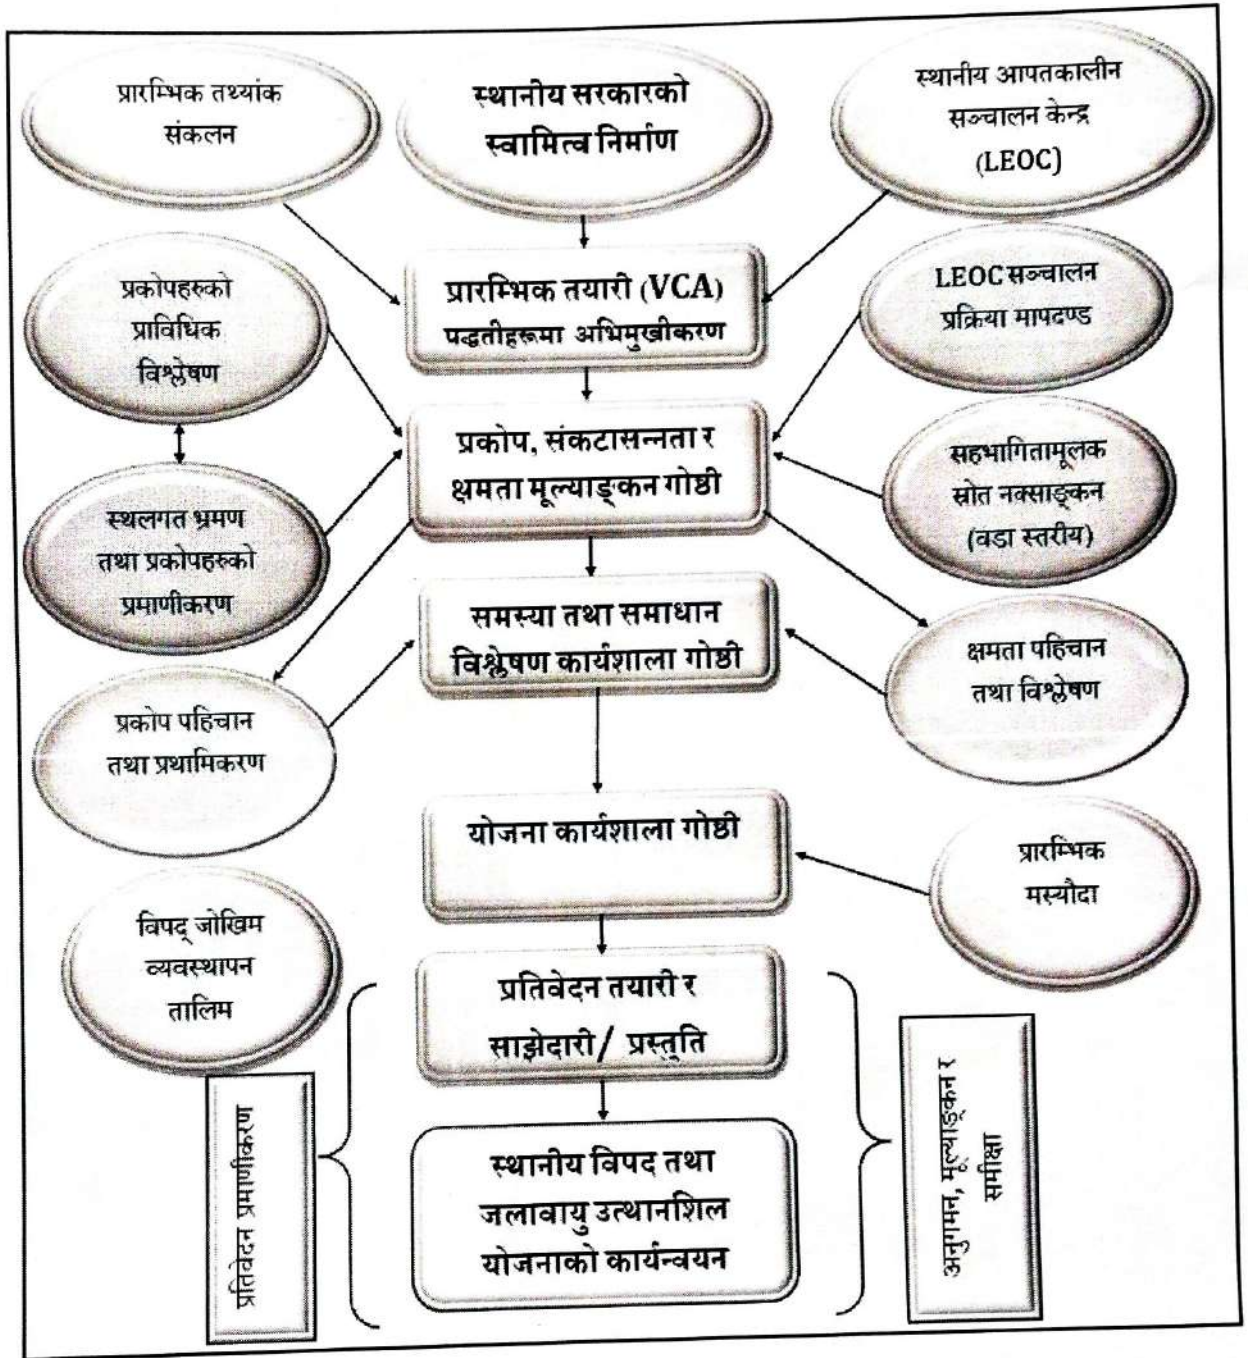 प्रारम्भिक तथ्यांक
संकलन
स्थानीय सरकारको
स्वामित्व निर्माण
स्थानीय आपतकालीन
सञ्चालन केन्द्र
(LEOC)
प्रकोपहरुको
प्राविधिक
विश्लेषण
प्रारम्भिक तयारी (VCA)
पद्धतीहरूमा अभिमुखीकरण
LEOC सञ्चालन
प्रक्रिया मापदण्ड
प्रकोप, संकटासन्नता र
क्षमता मूल्याङ्कन गोष्ठी
सहभागितामूलक
स्रोत नक्साङ्कन
(वडा स्तरीय)
स्थलगत भ्रमण
तथा प्रकोपहरुको
प्रमाणीकरण
समस्या तथा समाधान
विश्लेषण कार्यशाला गोष्ठी
क्षमता पहिचान
तथा विश्लेषण
प्रकोप पहिचान
तथा प्रथामिकरण
योजना कार्यशाला गोष्ठी
प्रारम्भिक
मस्यौदा
विपद् जोखिम
व्यवस्थापन
तालिम
प्रतिवेदन तयारी र
साझेदारी / प्रस्तुति
प्रतिवेदन प्रमाणीकरण
स्थानीय विपद तथा
जलावायु उत्थानशिल
योजनाको कार्यन्वयन
अनुगमन, मूल्याङ्कन र
समीक्षा